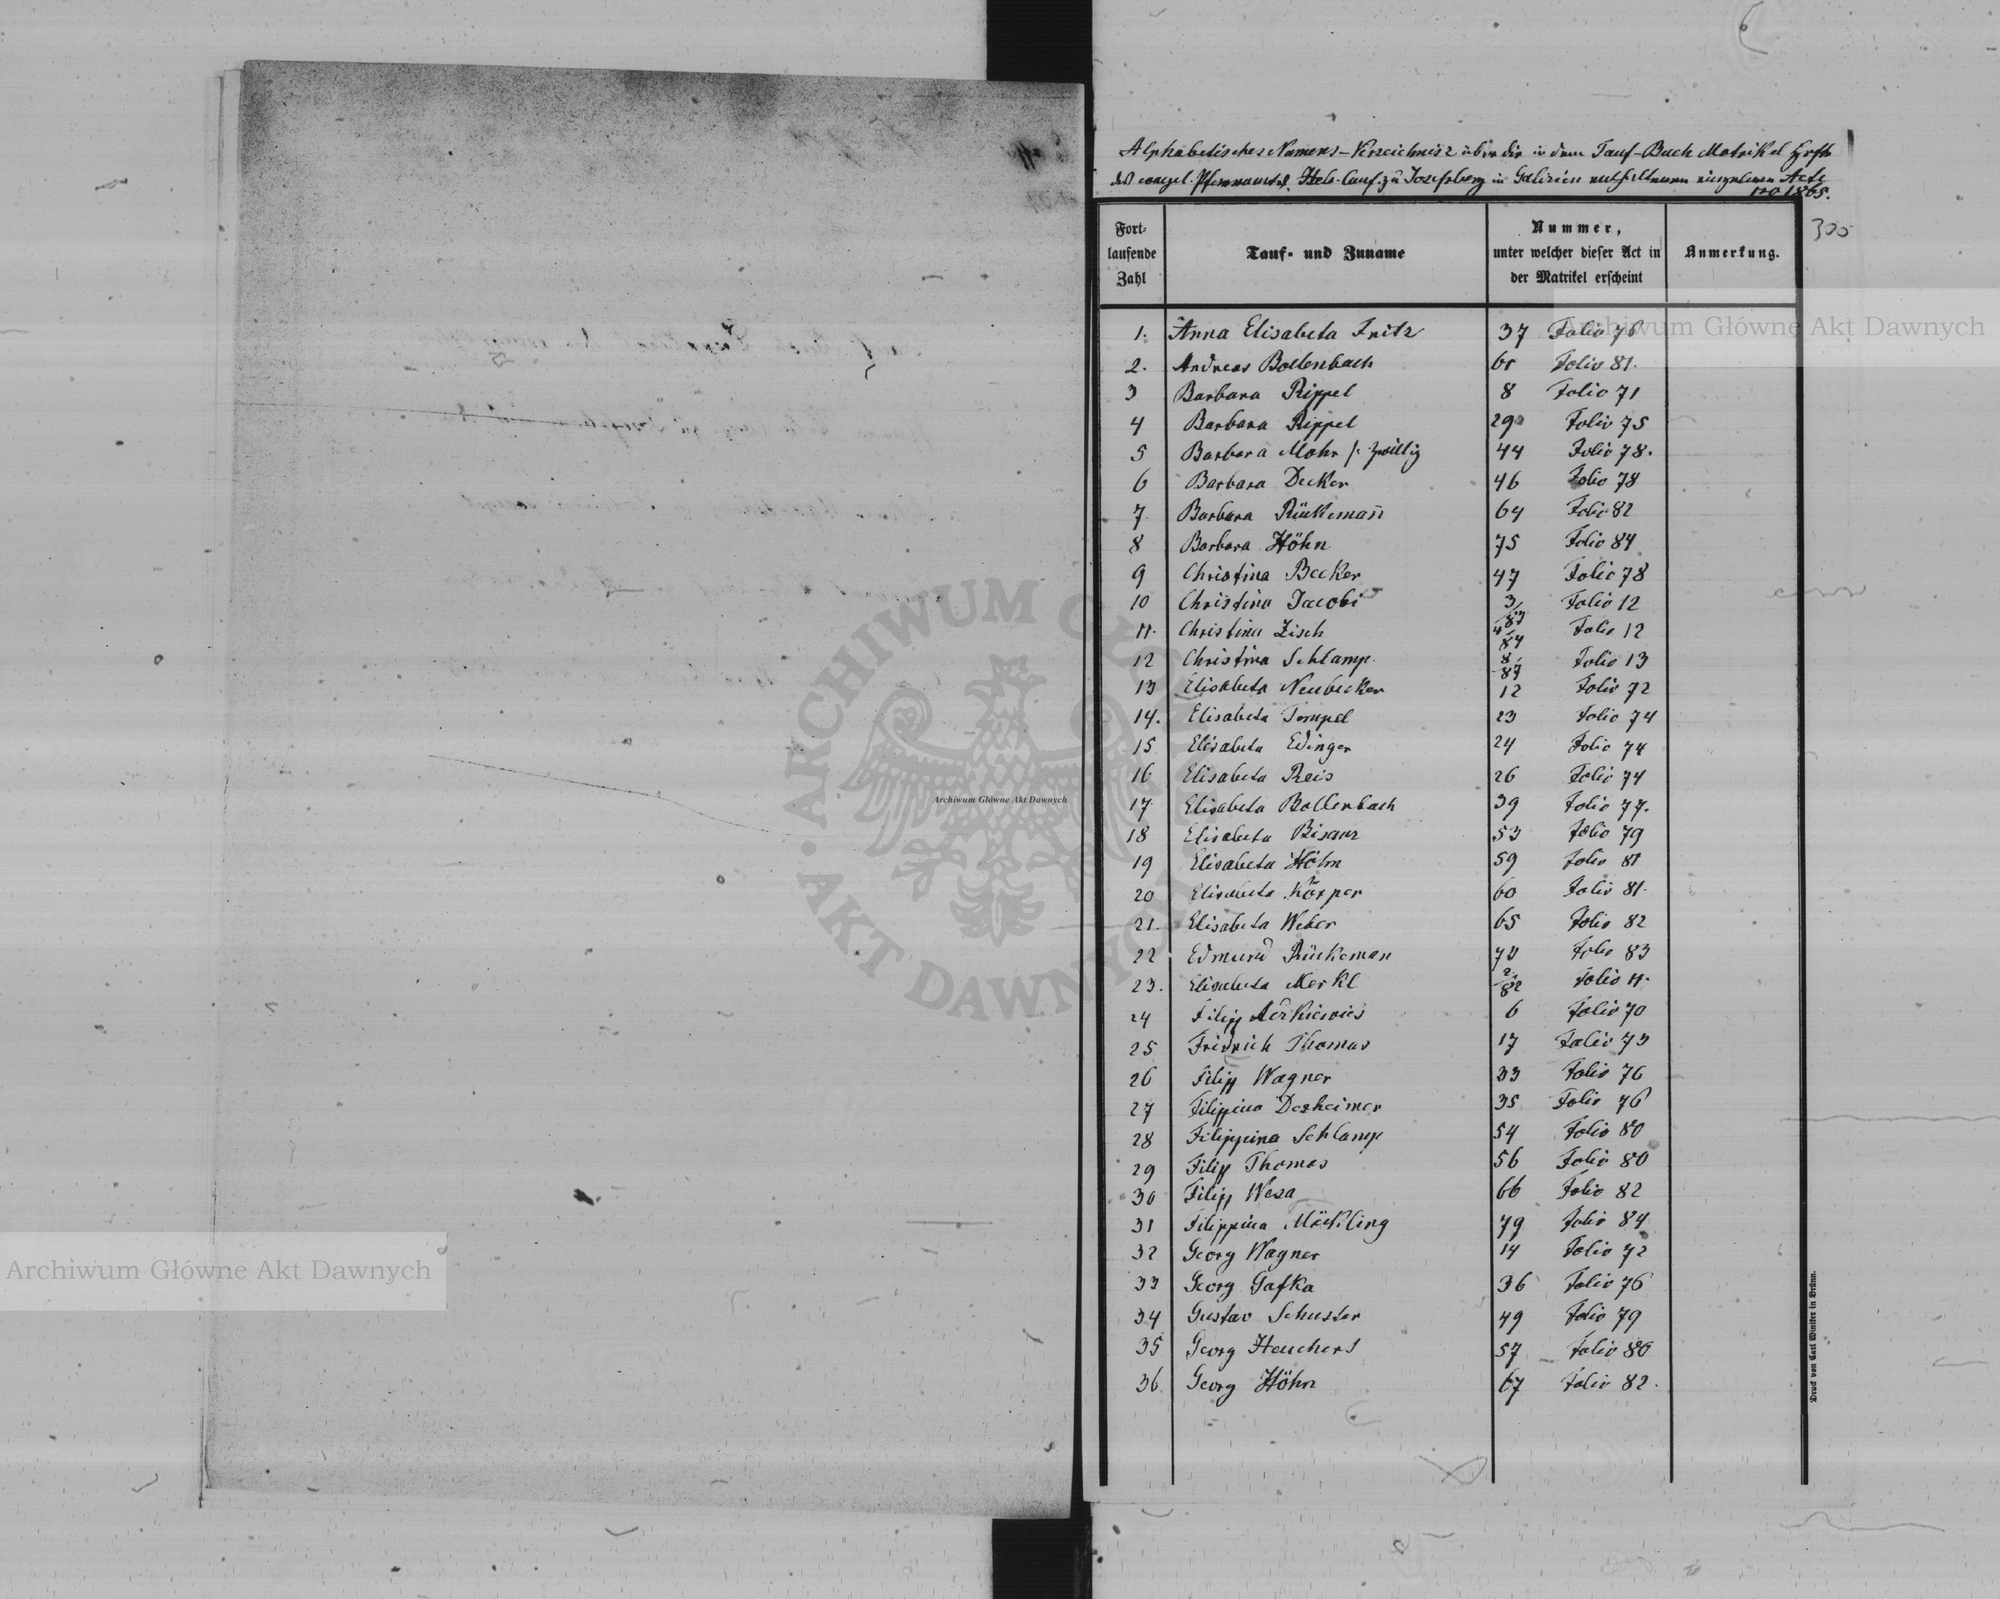 Alphabetisches Namens-Verzeichniss über die in dem Tauf-Buch Matrikel
des evangel. Pfarramtes Helv. Conf. zu Josefsberg in Galizien Acte
pro 1865.
300
Fort-
laufende
Zahl
Tauf- und Zuname
Nummer,
unter welcher dieser Act in
der Matrikel erscheint
Anmerkung.
1. Anna Elisabeta Fritz 37 Folio 76
2. Andreas Bollenbach 61 Folio 81.
3 Barbara Rippel 8 Folio 71
4 Barbara Rippel 29 Folio 75
5 Barbara Mohr /: zwillig 44 Folio 78.
6 Barbara Decker 46 Folio 78
7 Barbara Rückeman̄ 64 Folio 82
8 Barbara Höhn 75 Folio 84
9 Christina Becker 47 Folio 78
10 Christina Jacobi 3/83 Folio 12
11. Christina Zisch 4/84 Folio 12
12 Christina Schlamp 8/87 Folio 13
13 Elisabeta Neubecker 12 Folio 72
14. Elisabeta Tempel 23 Folio 74
15 Elisabeta Edinger 24 Folio 74
16 Elisabeta Reis 26 Folio 74
17 Elisabeta Bollenbach 39 Folio 77.
18 Elisabeta Bisanz 53 Folio 79
19 Elisabeta Höhn 59 Folio 81
20 Elisabeta Körper 60 Folio 81.
21. Elisabeta Weber 65 Folio 82
22 Edmund Rückeman 73 Folio 83
23. Elisabeta Merkl 2/82 Folio 11.
24 Filipp 6 Folio 70
25 Fridrich Thomas 17 Folio 73
26 Filipp Wagner 33 Folio 76
27 Filippina Dexheimer 35 Folio 76
28 Filippina Schlamp 54 Folio 80
29 Filipp Thomas 56 Folio 80
30 Filipp Wesa 66 Folio 82
31 Filippina Möckling 79 Folio 84
32 Georg Wagner 14 Folio 72
33 Georg Gafka 36 Folio 76
34 Gustav Schuster 49 Folio 79
35 Georg Heuchert 57 Folio 80
36 Georg Höhn 67 Folio 82.
Druck von Carl Winiker in Brünn.
Archiwum Główne Akt Dawnych
Archiwum Główne Akt Dawnych
Archiwum Główne Akt Dawnych
ARCHIWUM GŁÓWNE AKT DAWNYCH